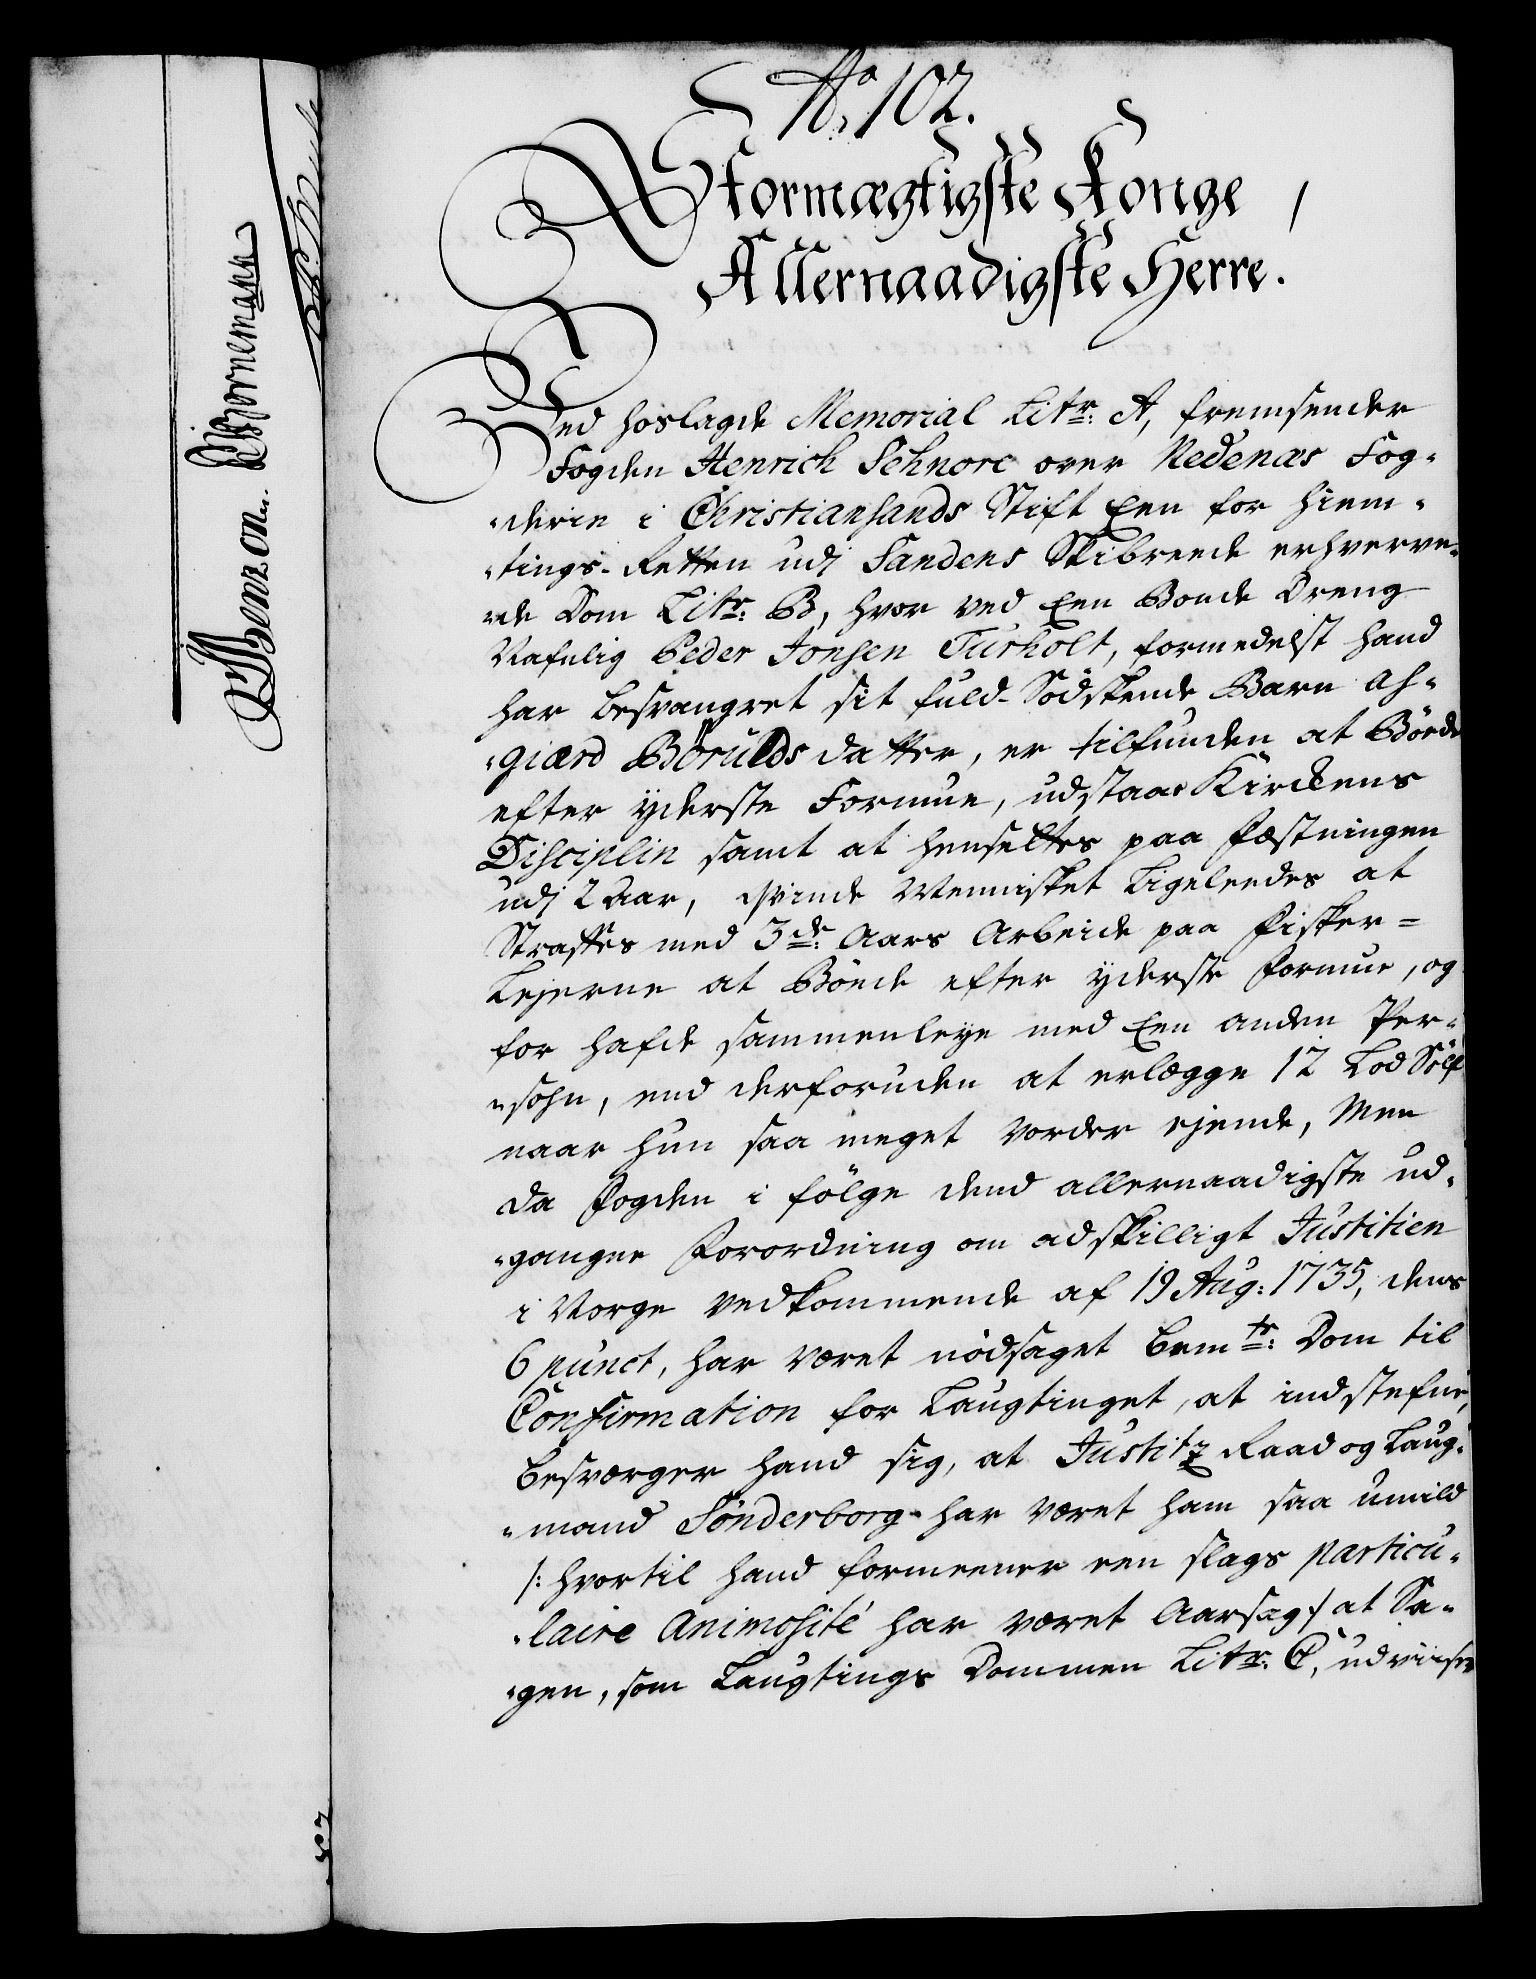 No 102.
Stormægtigste Konge
Allernaadigste Herre.
Ved hoslagde Memorial Litr: A, fremsender
Fogden Henrich Schnore over Nedenæs Fog-
-derie i Christiansands Stift Een for Hiem-
-tings-Retten udj Sandens Skibreede erhverve-
-de Dom Litr: B, hvor ved Een Bonde Dreng
Nafnlig Peder Jonsen Turholt, formedelst hand
har besvangret sit fuld-Södskende Barn As-
-giærd Börulds datter, er tilfunden at Böde
efter yderste Formue, udstaae Kirckens
Disciplin samt at hensettes paa Fæstningen
udj 2 Aar, Qvinde Mennisket Ligeleedes at
Straffes med 3de: Aars Arbeide paa Fisker=
Lejerne at Böde efter yderste Formue, og
for hafde sammenleye med Een anden Per-
-sohn, end derforuden at erlægge 12 Lod Sölf
naar hun saa meget vorder ejende, Men
da Fogden i fölge dend allernaadigste ud-
-gangne Forordning om adskilligt Justitien
i Norge vedkommende af 19 Aug: 1735, dens
6 punct, har været nödsaget bemte: Dom til
Confirmation for Laugtinget, at indstefne,
besværger hand sig, at Justitz Raad og Laug-
-mand Sönderborg har været ham saa umild
/: hvortil hand formeener een slags particu-
-laire Animosité har været Aarsag:/ at Sa-
-gen, som Laugtings Dommen Litr: C, udviiser
Benzon. Bornemann